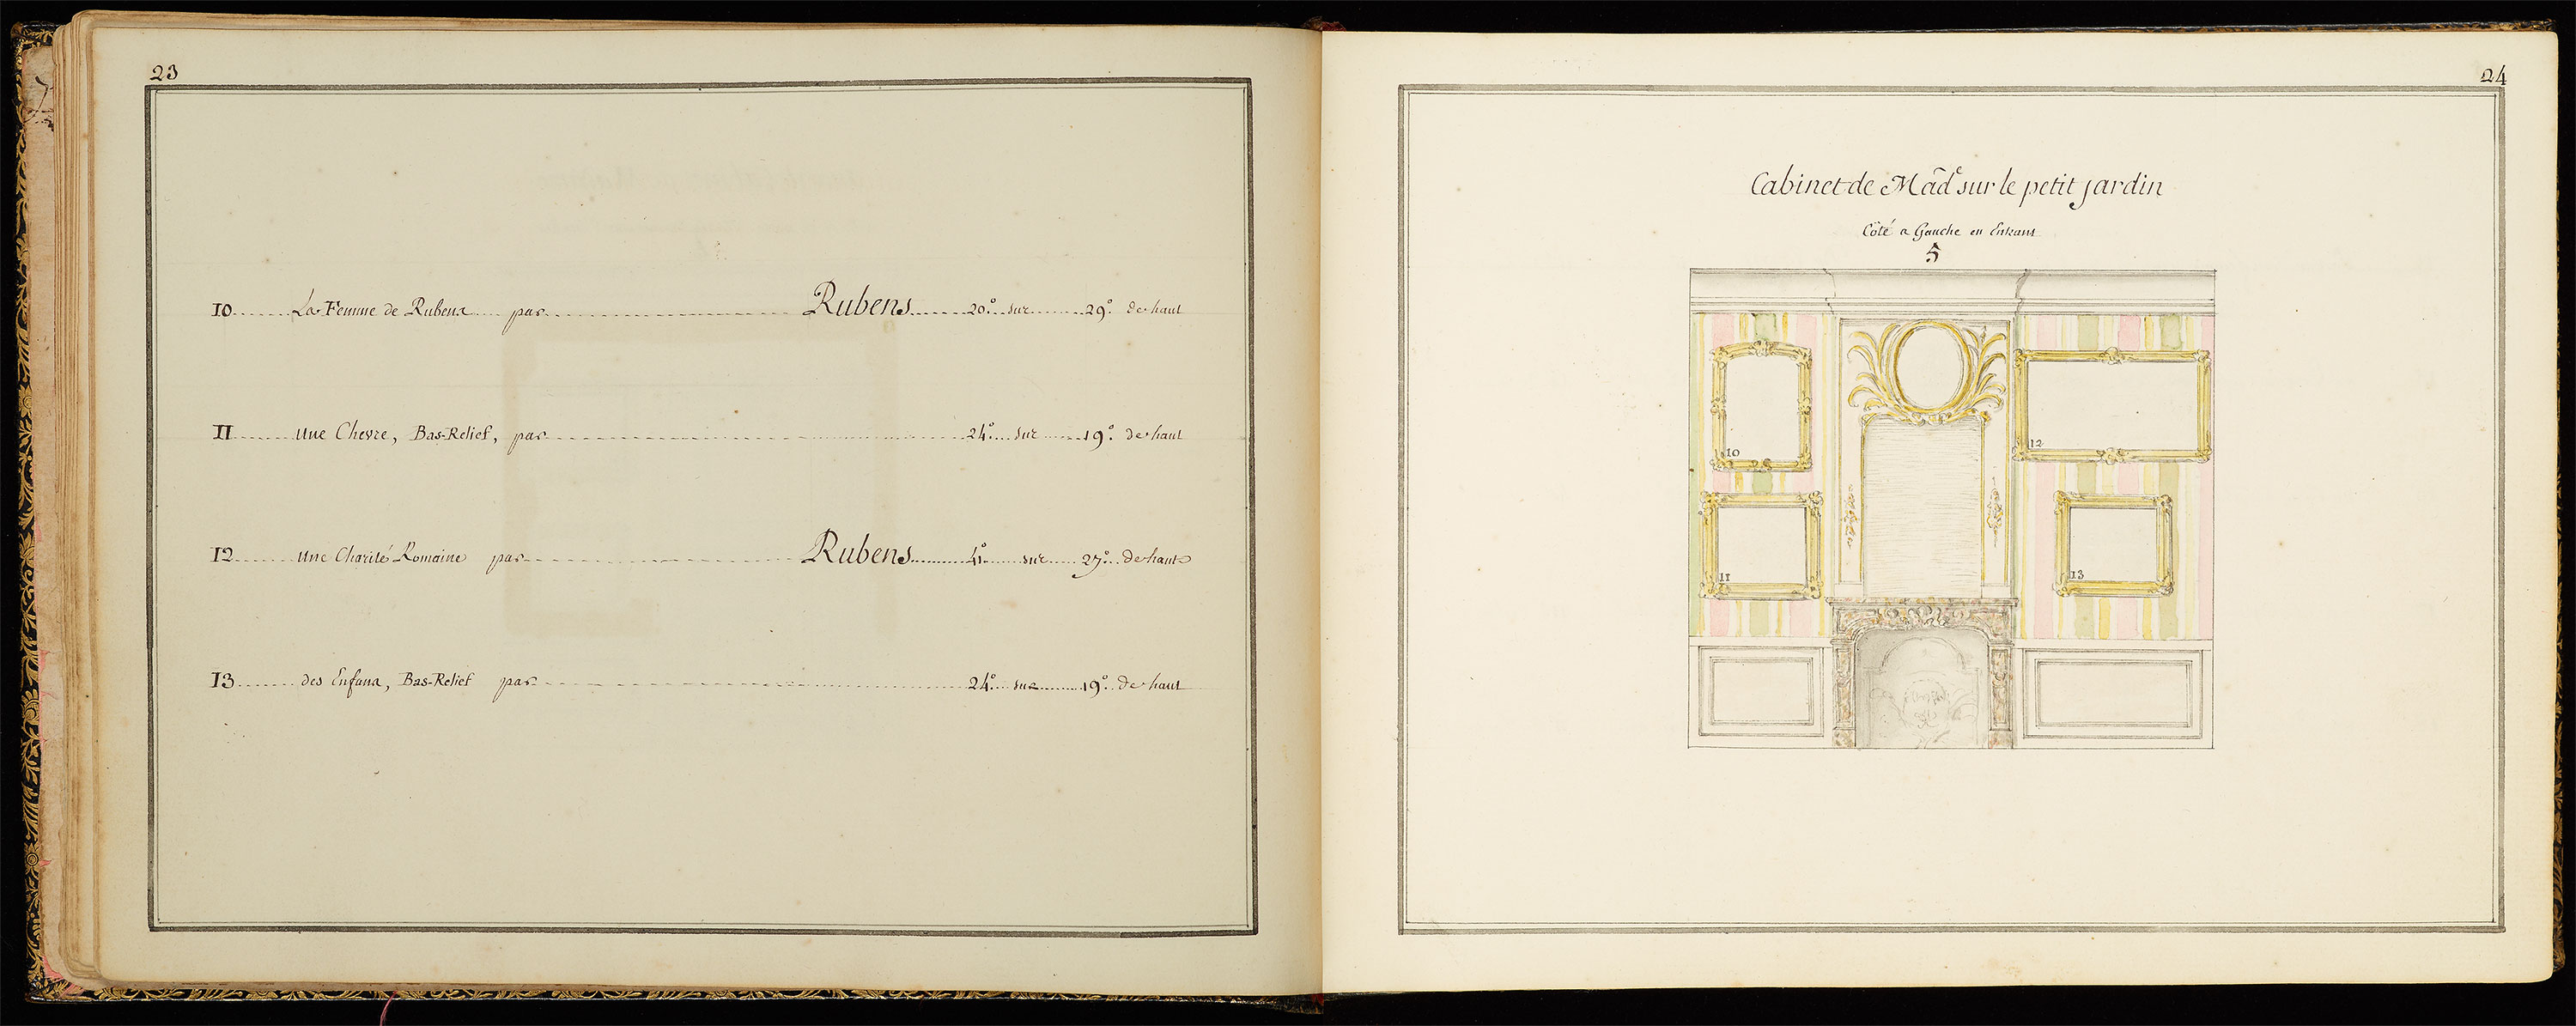 23
10 La Femme de Rubens par Rubens 20° sur 29° de haut
11 une Chevre, Bas-Relief, par 24° sur 19° de haut
12 une Charité Romaine par Rubens 41° sur 27° de haut
13 des Enfans, Bas-Relief par 24° sur 19° de haut
24
Cabinet de Made sur le petit jardin
Côté a Gauche en Entrant
5
10
12
11
13